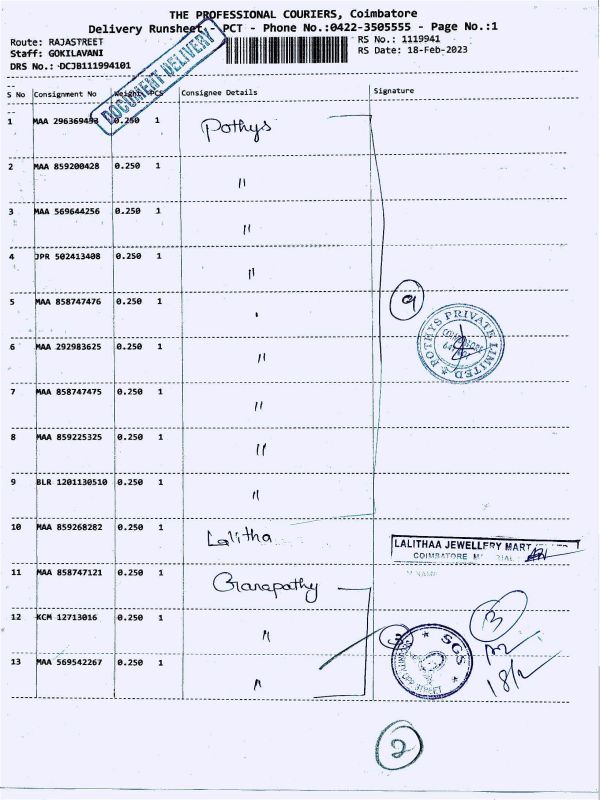 THE PROFESSIONAL COURIERS, Coimbatore
Delivery Runsheet - PCT - Phone No.:0422-3505555 - Page No.:1
Route: RAJASTREET
RS No.: 1119941
Staff: GOKILAVANI
RS Date: 18-Feb-2023
DRS No.: DCJB111994101
DOCUMENT DELIVERY
S No Consignment No Weight PCS Consignee Details Signature
1 MAA 296369493 0.250 1 Pothys
2 MAA 859200428 0.250 1 "
3 MAA 569644256 0.250 1 "
4 JPR 502413408 0.250 1 "
5 MAA 858747476 0.250 1 "
9
POTHYS PRIVATE LIMITED
COIMBATORE
6 MAA 292983625 0.250 1 "
7 MAA 858747475 0.250 1 "
8 MAA 859225325 0.250 1 "
9 BLR 1201130510 0.250 1 "
10 MAA 859268282 0.250 1 Lalitha
LALITHAA JEWELLERY MART
COIMBATORE
11 MAA 858747121 0.250 1 Ganapathy
12 KCM 12713016 0.250 1 "
13
3
SGS
STREET
18/2
13 MAA 569542267 0.250 1 "
2